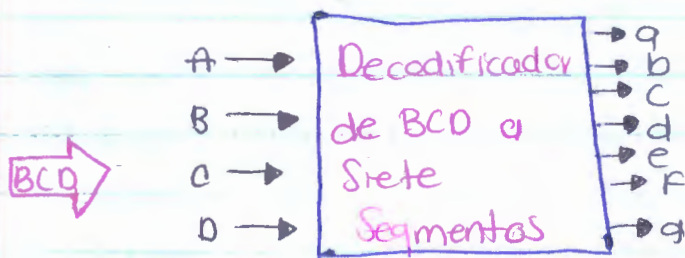 A
B
C
D
BCD
Decodificador
de BCD a
Siete
Segmentos
a
b
c
d
e
F
g